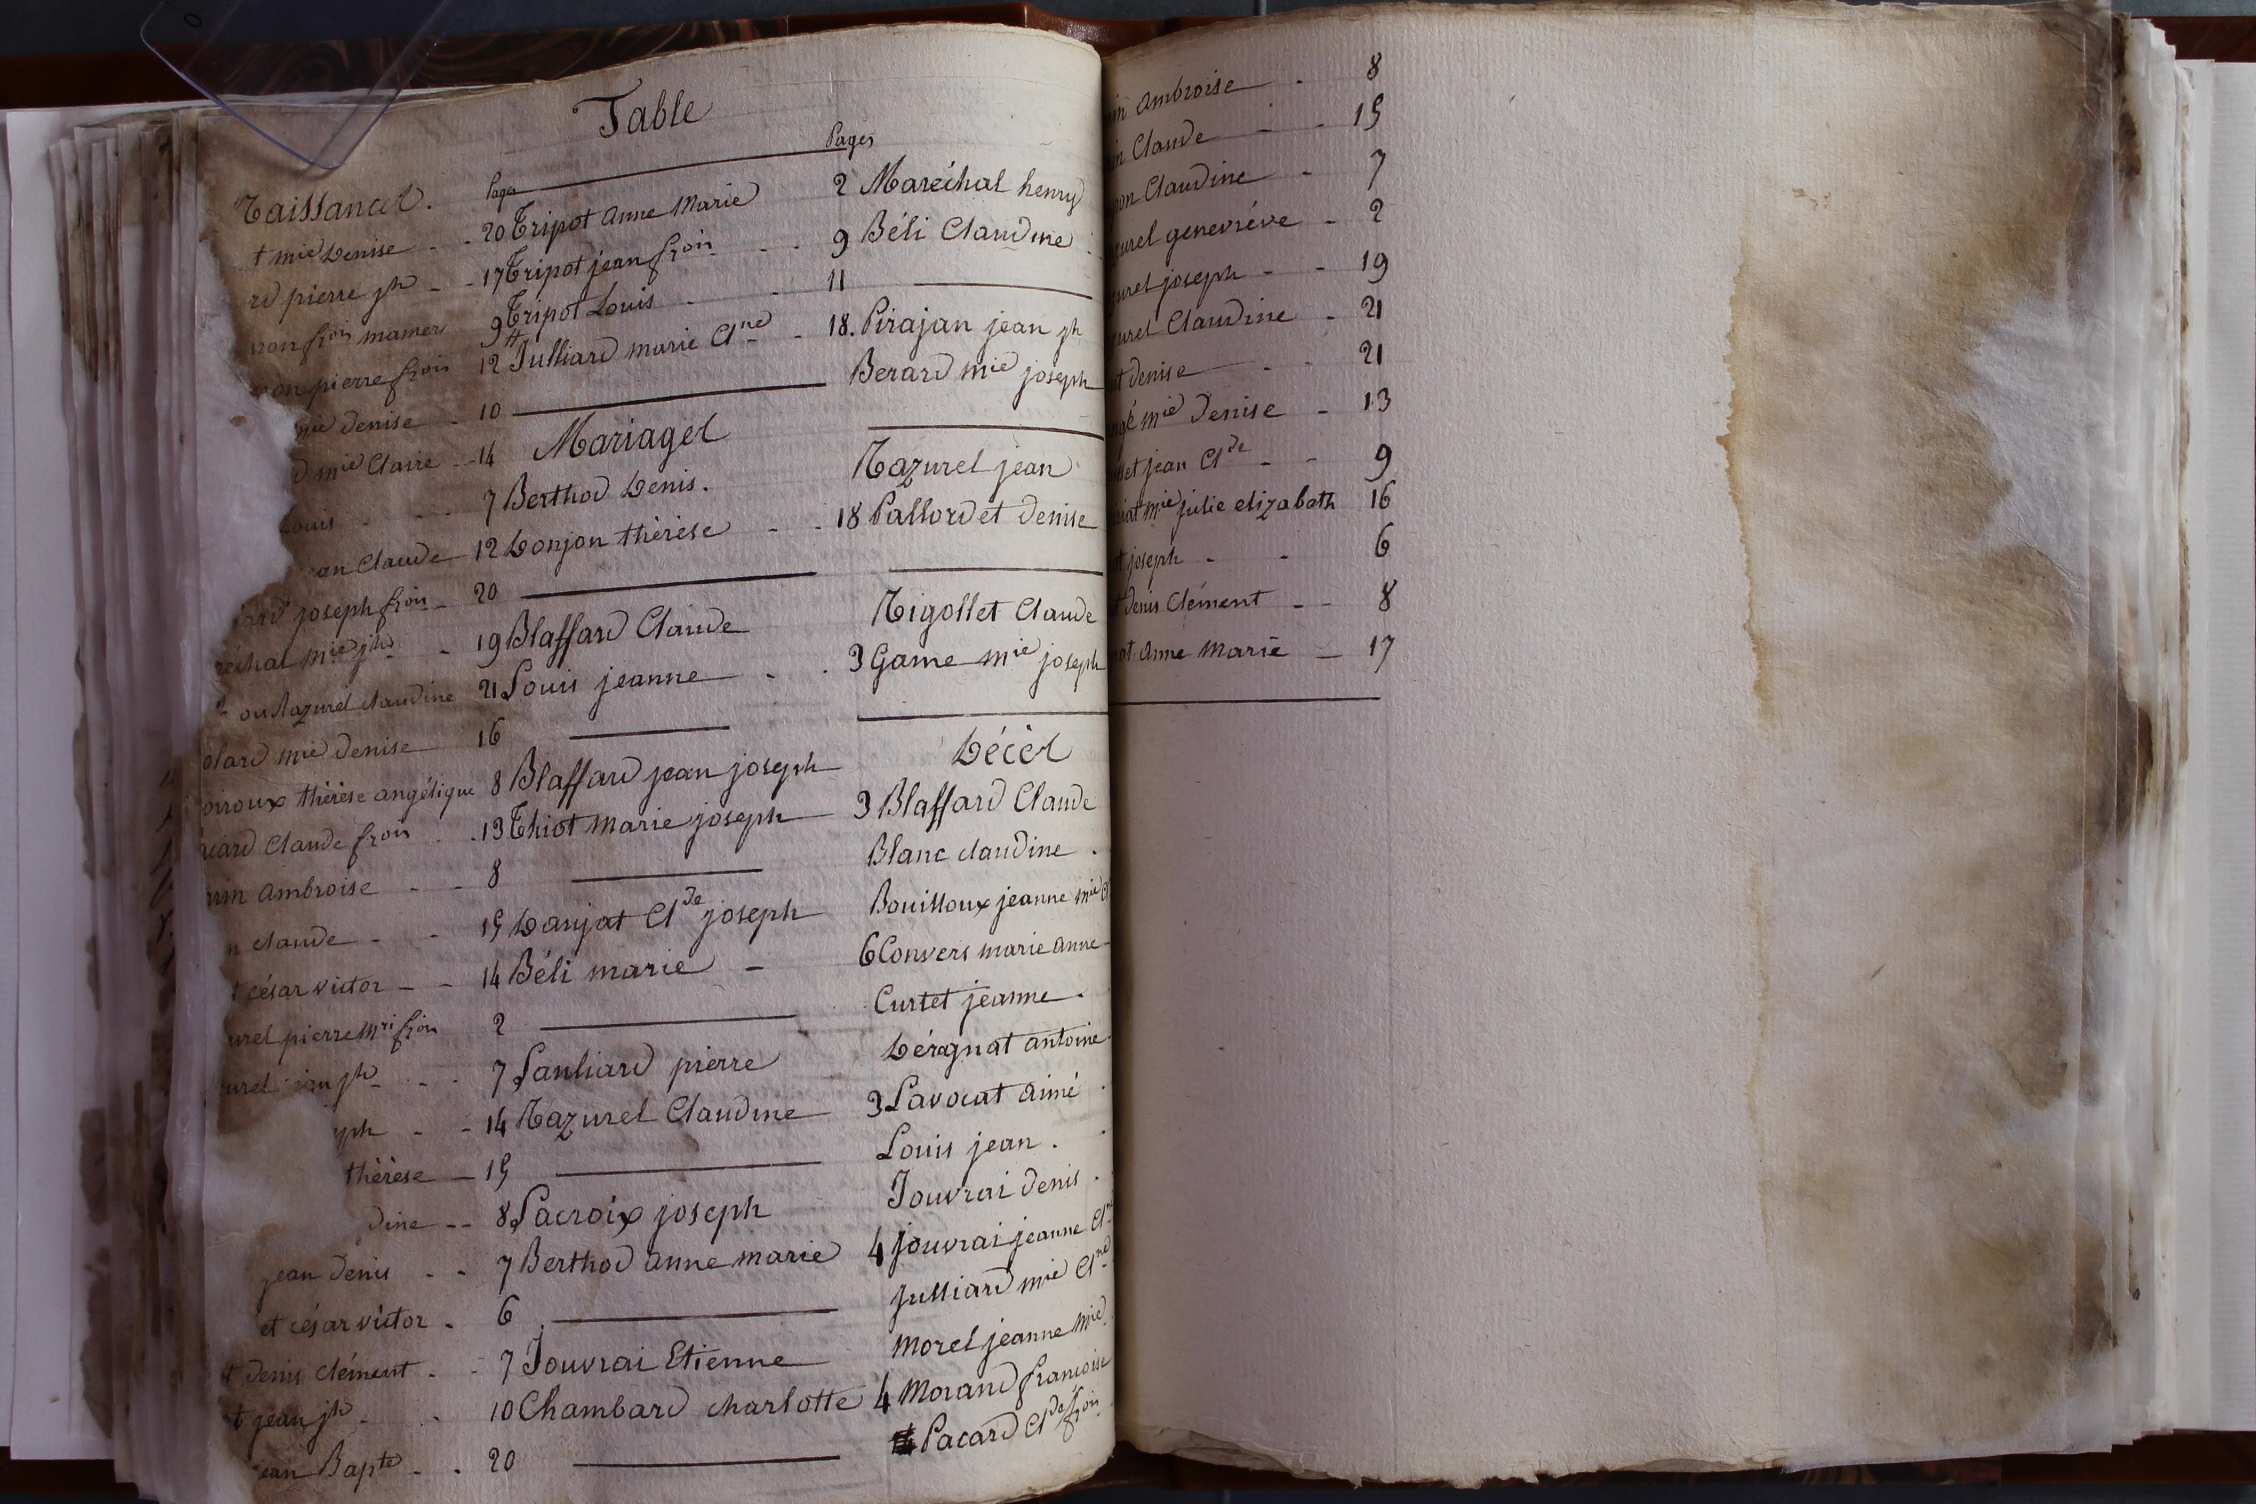 Table
Naissances.
Pages
t mie Denise - - 20
rd pierre jh - - 17
fçois mamer 9
pierre fçois 12
mie denise - 10
d mie Claire - 14
Louis - - 7
an Claude - 12
ard joseph fçois - 20
réchal mie jh - 19
ou Nazurel claudine 21
olard mie denise 16
oiroux thérèse angélique 8
card Claude fçois - 13
rin ambroise - - 8
n claude - - 15
t césar victor - - 14
urel pierre Mri fçois 2
urel jean jh - - 7
jph - - 14
thérèse - 15
dine - - 8
jean denis - - 7
et césar victor - 6
t denis clément - - 7
t jean jh - - 10
ean Bapte - - 20
Pages
Tripot anne Marie 2
Tripot jean fçois - - 9
Tripot Louis - - 11
Julliard marie Clne - - 18.
Mariages
Berthod Denis.
Donjon thérèse - - 18
Blaffard Claude
Louis jeanne - - 3
Blaffard jean joseph
Thiot marie joseph 3
Danjat Clde joseph
Béli marie - 6
Lanliard pierre
Nazurel Claudine 3
Lacroix joseph
Berthod anne marie 4
Jouvrai Etienne
Chambard charlotte 4
Maréchal henry
Béli Claudine
Pirajan jean jh
Berard mie joseph
Nazurel jean
Pallordet denise
Nigollet Claude
Game mie joseph
Décès
Blaffard Claude
Blanc claudine .
Bouilloux jeanne mie
Convers marie anne
Curtet jeanne .
Dérognat antoine
Lavocat aimé
Louis jean .
Jouvrai denis .
jouvrai jeanne Clne
julliard mie Clne
morel jeanne mie
Morand francoise
Pacard Clde fçois
in ambroise - 8
in Claude - - 15
on Claudine - 7
urel geneviéve - 2
urel joseph - - 19
urel Claudine - 21
t denise - - 21
mie Denise - 13
et jean Clde - - 9
at mie julie elizabeth 16
t joseph - - 6
t denis Clément - - 8
ot anne marie - 17